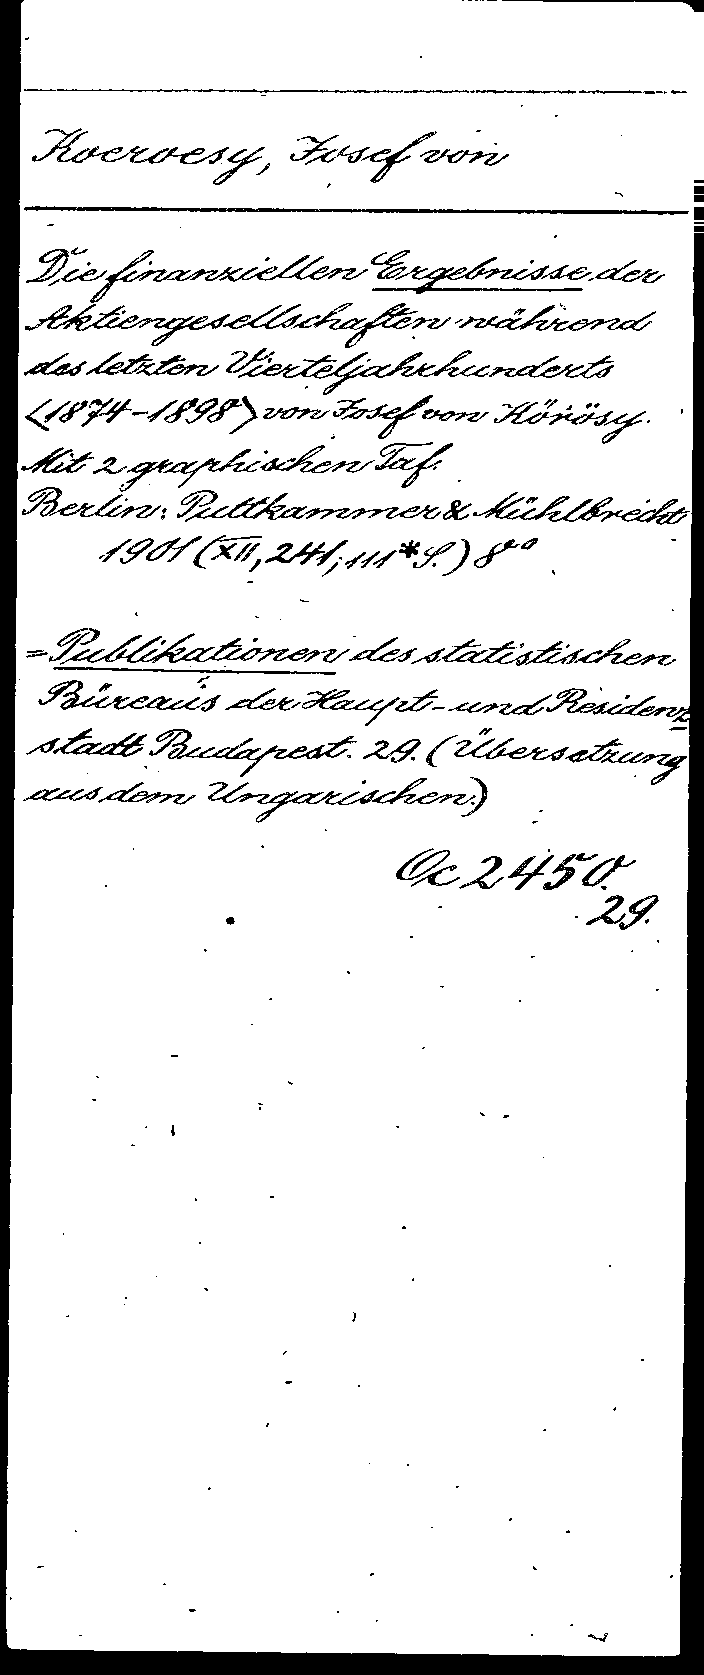 Koeroesy, Josef von
Die finanziellen Ergebnisse der
Aktiengesellschaften während
des letzten Vierteljahrhunderts
<1874-1898> von Josef von Körösy.
Mit 2 graphischen Taf.
Berlin: Puttkammer & Mühlbrecht
1901 (XII, 241, 111* S.) 8°
=Publikationen des statistischen
Büreaus der Haupt- und Residenz
stadt Budapest. 29. (Übersetzung
aus dem Ungarischen.)
Oc 2450.
29.